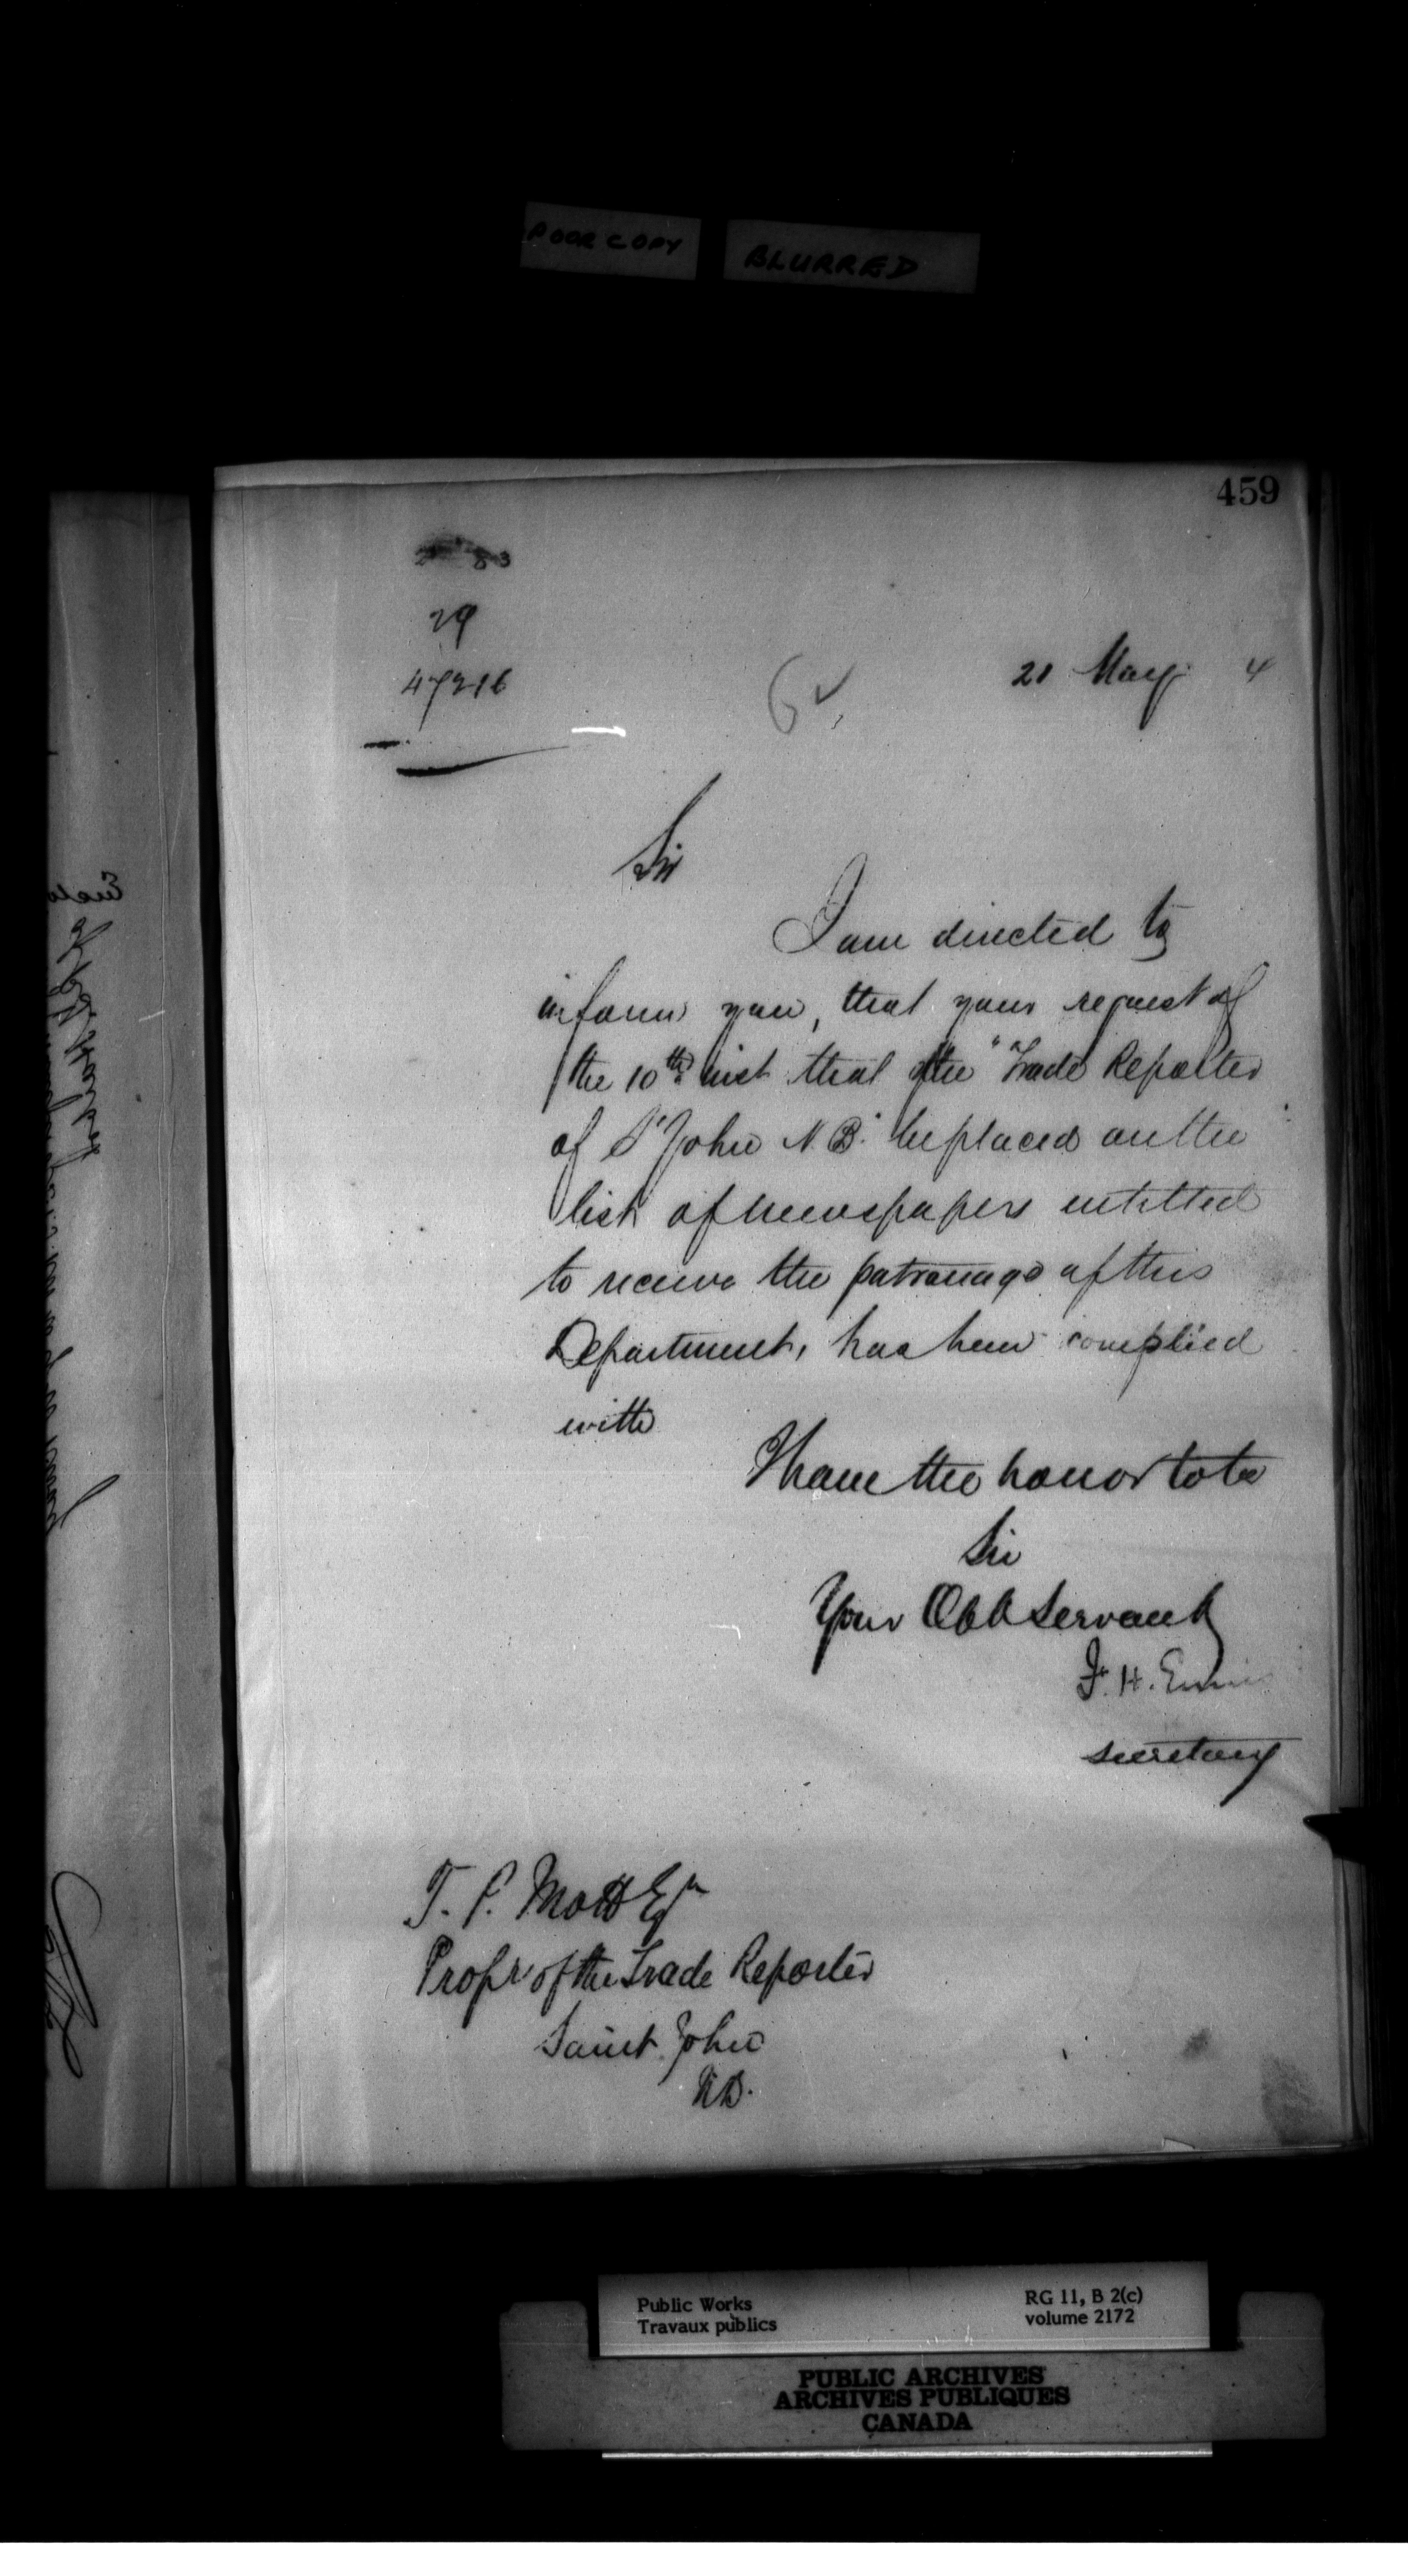 POOR COPY BLURRED
459
29
47216
21 May 4
Sir
I am directed to
inform you, that your request of
the 10th inst that the "Trade Reporter
of St John N.B." be placed on the
list of newspapers entitled
to receive the patronage of this
Department, has been complied
with
I have the honor to be
Sir
Your Obt Servant
F. H. Ennis
Secretary
T. P. Mott Esqr
Propr of the Trade Reporter
Saint John
N.B.
Public Works
Travaux publics
RG 11, B 2(c)
volume 2172
PUBLIC ARCHIVES
ARCHIVES PUBLIQUES
CANADA